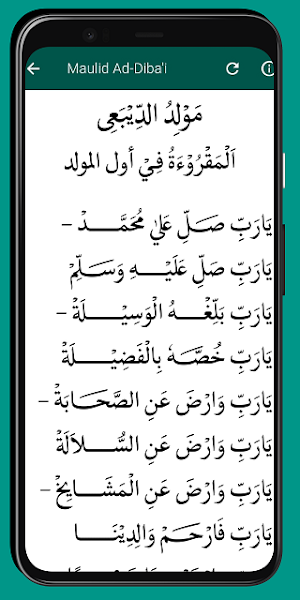 Maulid Ad-Diba'i
مَوْلِدُ الدِّيْبَعِى
اَلْمَقْرُوْءَةُ فِيْ أول المولد
يَارَبِّ صَلِّ عَلٰى مُحَمَّدْ –
يَارَبِّ صَلِّ عَلَيْهِ وَسَلِّمْ
يَارَبِّ بَلِّغْهُ الْوَسِيْلَةْ –
يَارَبِّ خُصَّهٗ بِالْفَضِيْلَةْ
يَارَبِّ وَارْضَ عَنِ الصَّحَابَةْ –
يَارَبِّ وَارْضَ عَنِ السُّلاَلَةْ
يَارَبِّ وَارْضَ عَنِ الْمَشَايِخْ –
يَارَبِّ فَارْحَمْ وَالِدِيْنَا